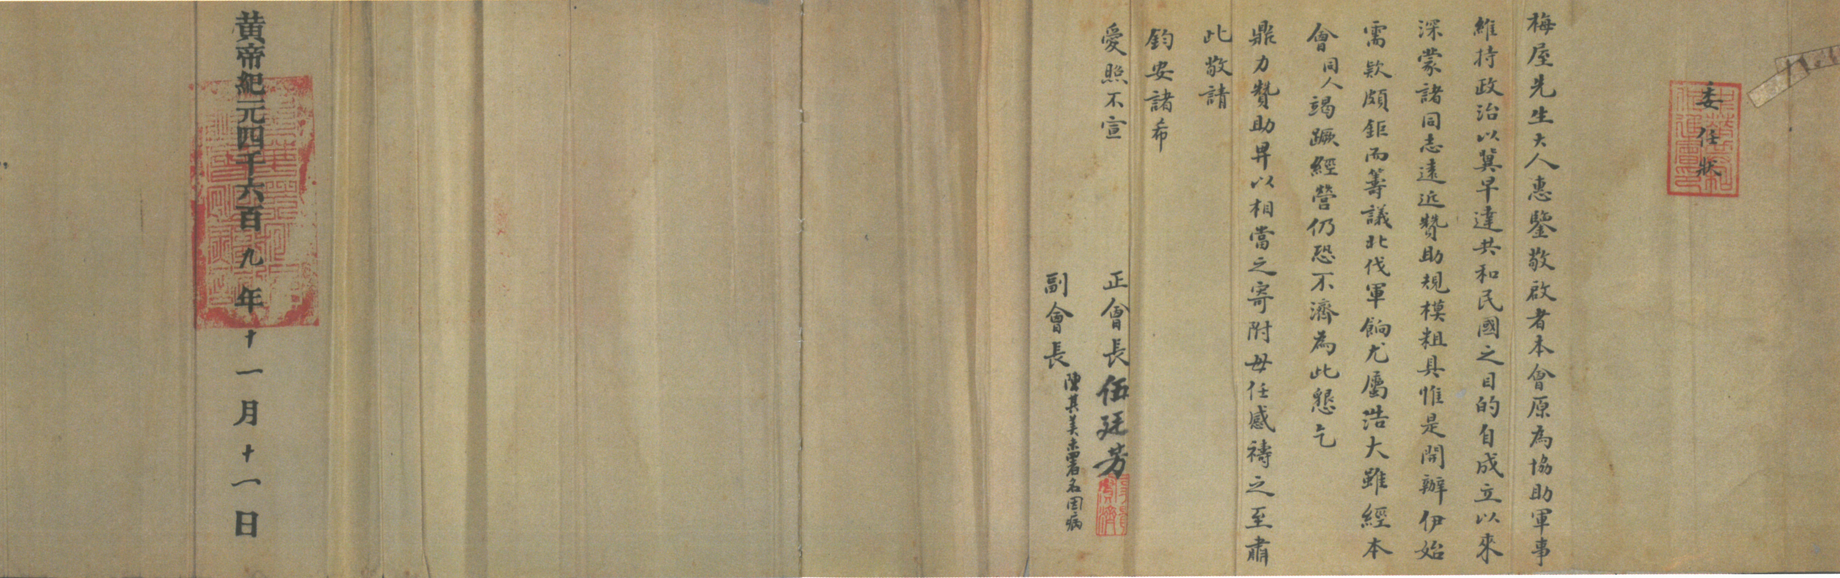 委任狀
梅屋先生大人惠鑒敬啟者本會原為協助軍事
維持政治以冀早達共和民國之目的自成立以來
深蒙諸同志遠近贊助規模粗具惟是開辦伊始
需欵頗鉅而籌議北伐軍餉尤屬浩大雖經本
會同人竭蹶經營仍恐不濟為此懇乞
鼎力贊助畀以相當之寄附毋任感禱之至肅
此敬請
鈞安諸希
愛照不宣
正會長伍廷芳
副會長陳其美未署名因病
黃帝紀元四千六百九年十一月十一日